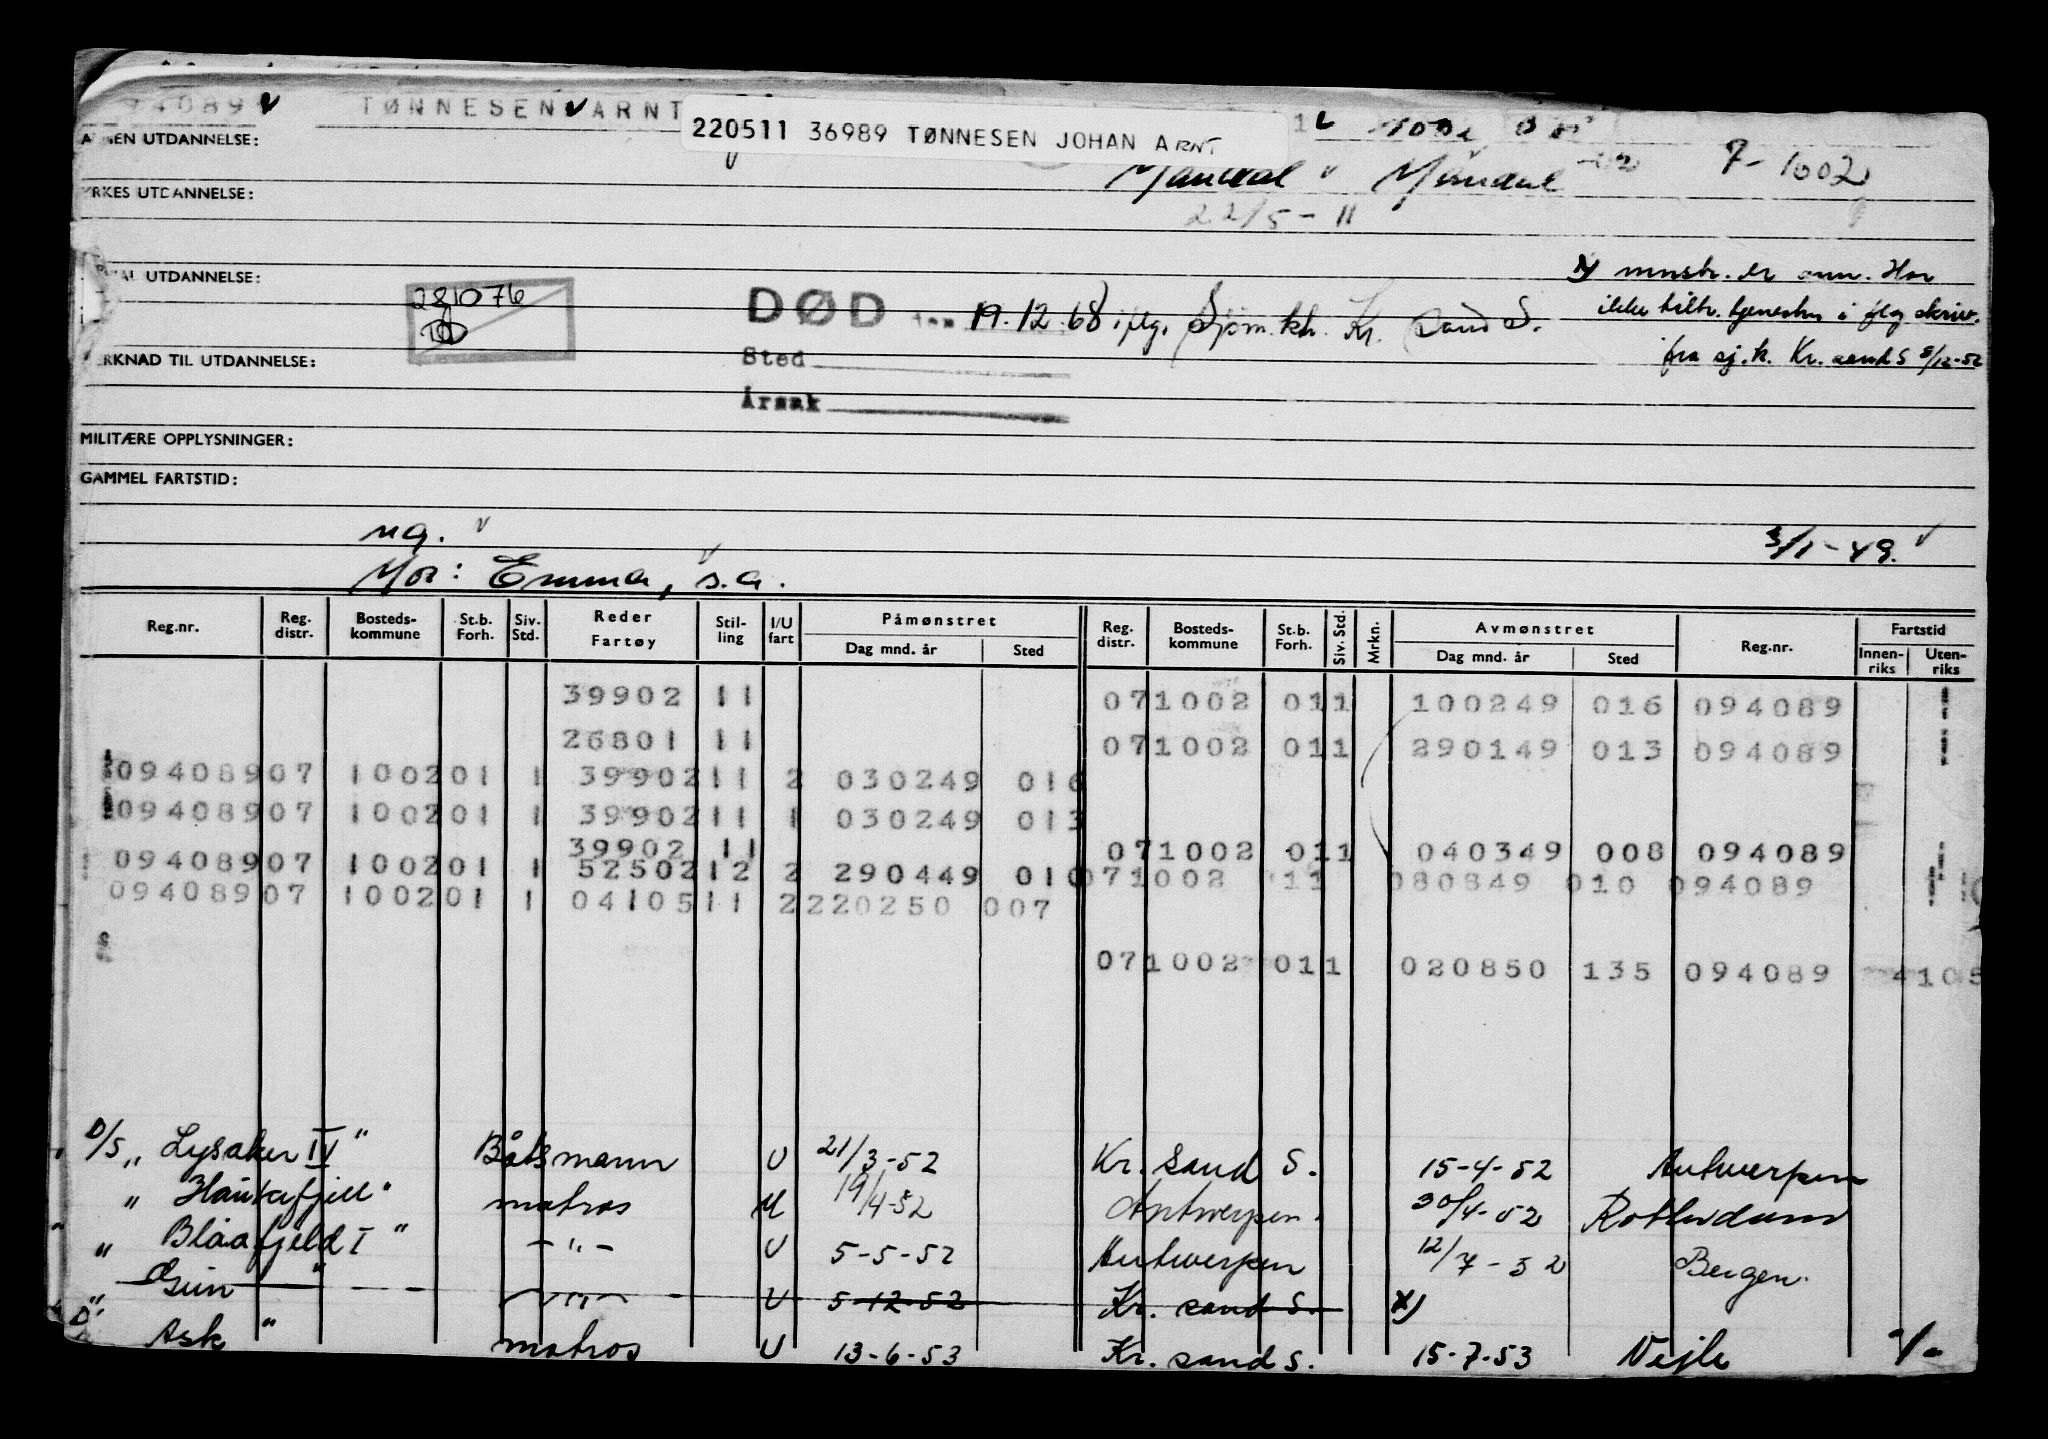 94089 TØNNESEN ARNT
220511 36989 TØNNESEN JOHAN ARNT
UTDANNELSE:
Mandal Mandal 7-1002
YRKES UTDANNELSE:
22/5-11
UTDANNELSE:
281076
DØD 19.12.68 iflg. Sjøm.ktr. Kr. sand S.
x) mnstr. er ann. Har
ikke tiltr. tjenesten i flg skriv.
fra sj.k. Kr. sand S 5/12-52
Sted
MERKNAD TIL UTDANNELSE:
Årsak
MILITÆRE OPPLYSNINGER:
GAMMEL FARTSTID:
ug. 3/1-49.
Mor: Emma, s.a.
Reg.nr. Reg. distr. Bosteds-kommune St.b. Forh. Siv. Std. Reder Fartøy Stil-ling I/U fart Påmønstret Dag mnd. år Sted Reg. distr. Bosteds-kommune St.b. Forh. Siv. Std. Mrkn. Avmønstret Dag mnd. år Sted Reg.nr. Fartstid Innen-riks Uten-riks
39902 11 071002 011 100249 016 094089
26801 11 071002 011 290149 013 094089
09408907 100201 1 3990211 2 030249 016
09408907 100201 1 3990211 1 030249 013
39902 11 071002 011 040349 008 094089
09408907 100201 1 5250212 2 290449 010 071002 11 080849 010 094089
09408907 100201 1 0410511 2220250 007
071002 011 020850 135 094089 4105
D/S „Lysaker IV" Båtsmann U 21/3-52 Kr. sand S. 15-4-52 Antwerpen
" Haukefjell" matros U 19/4-52 Antwerpen. 30/4-52 Rotterdam
" Blaafjeld I" -"- U 5-5-52 Antwerpen 12/7-52 Bergen.
" Gun " -"- U 5-12-52 Kr. sand S. x)
D" Ask " matros U 13-6-53 Kr. sand S. 15-7-53 Vejle